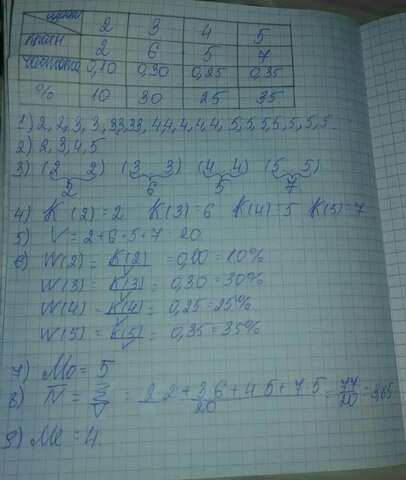 оценки 2 3 4 5
кратн 2 6 5 7
частота 0,10 0,30 0,25 0,35
% 10 30 25 35
1) 2, 2, 3, 3, 33,33, 4,4,4,4,4, 5,5,5,5,5,5,5
2) 2, 3, 4, 5
3) (2 2) (3 3) (4 4) (5 5)
2 6 5 7
4) K (2) = 2 K (3) = 6 K (4) = 5 K (5) = 7
5) V = 2+6+5+7 = 20
6) W(2) = K(2)/V = 0,10 = 10%
W(3) = K(3)/V = 0,30 = 30%
W(4) = K(4)/V = 0,25 = 25%
W(5) = K(5)/V = 0,35 = 35%
7) Mo = 5
8) N = S/V = 2 2 + 3 6 + 4 5 + 7 5/20 = 77/20 = 3,85
9) Me = 4.